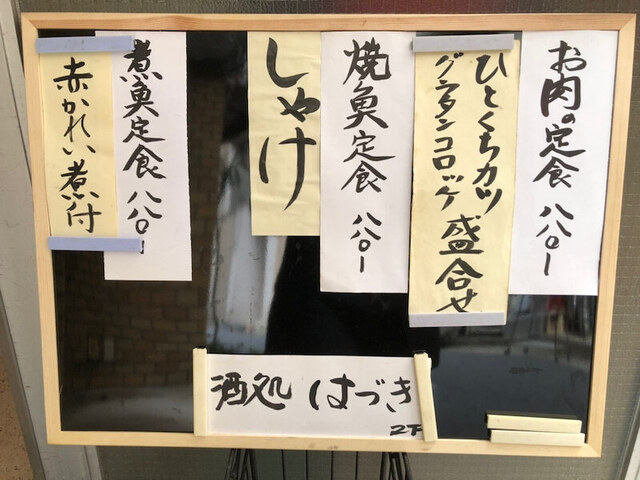 お肉の定食 八八〇ー
ひとくちカツ
グラタンコロッケ 盛合せ
焼魚定食 八八〇ー
しゃけ
煮魚定食 八八〇ー
赤かれい煮付
酒処 はづき
2F